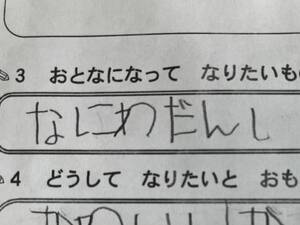 3 おとなになって なりたいもの
なにわだんし
4 どうして なりたいと おも
かっこいいか